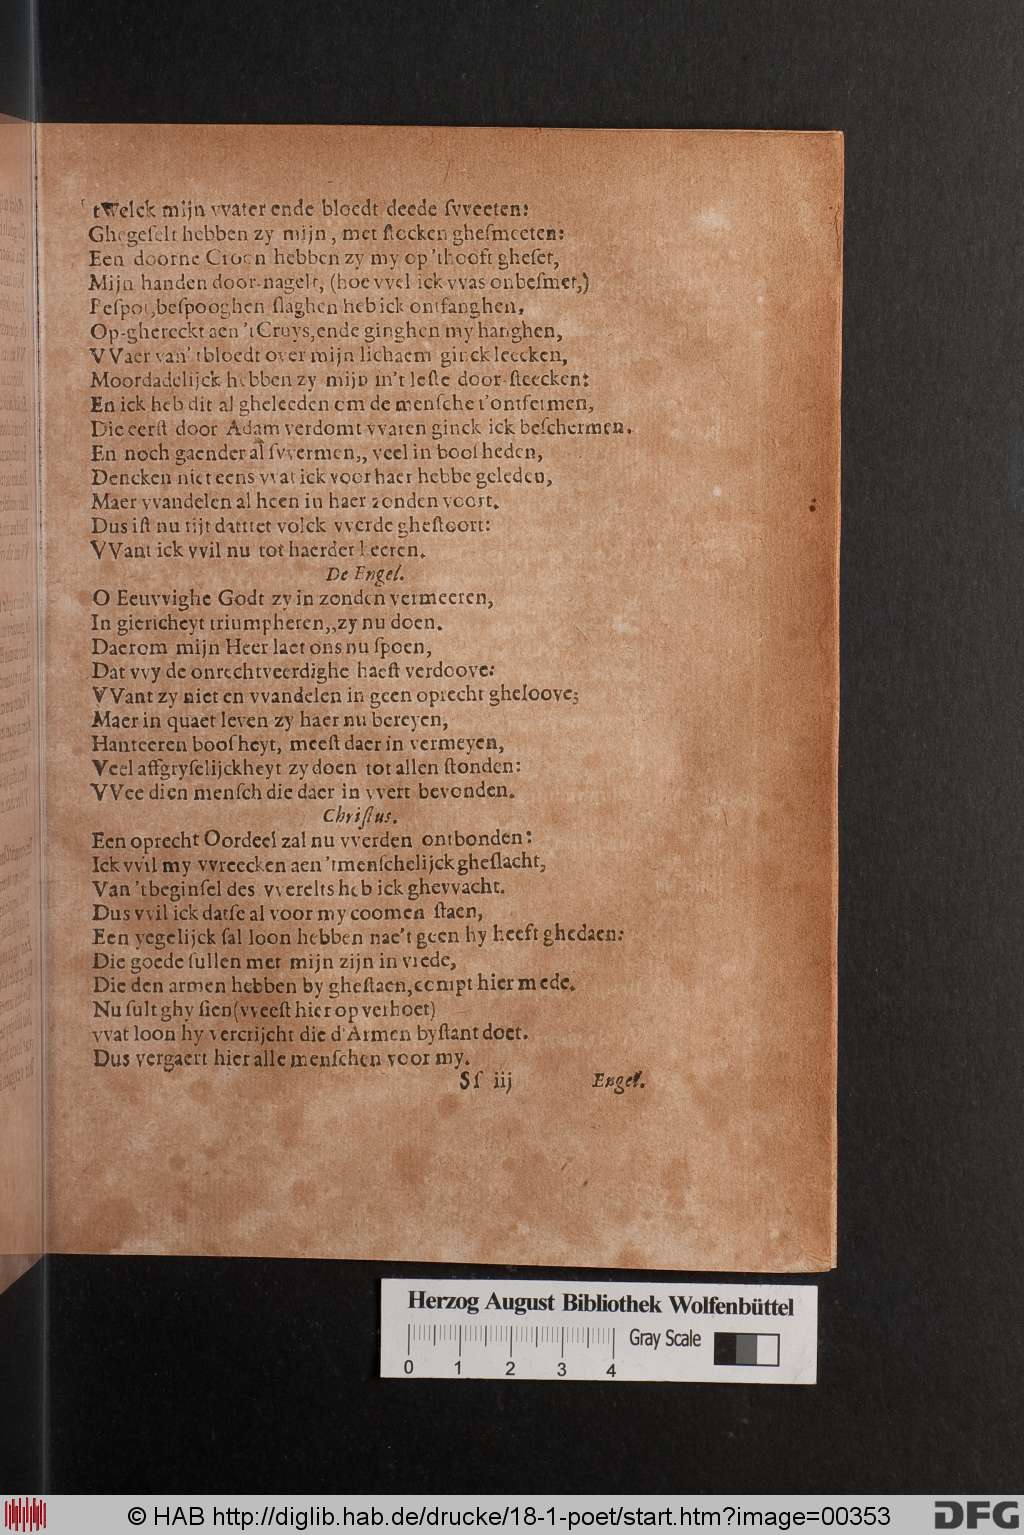 tWelck mijn vvater ende bloedt deede ſvveeten:
Ghegeſelt hebben zy mijn, met ſtocken gheſmeeten:
Een doorne Croon hebben zy my op 'thooft gheſet,
Mijn handen door-nagelt, (hoe vvel ick vvas onbeſmet,)
Beſpot, beſpooghen ſlaghen heb ick ontfanghen,
Op-ghereckt aen 't Cruys, ende ginghen my hanghen,
VVaer van' tbloedt over mijn lichaem ginck leecken,
Moordadelijck hebben zy mijn in't leſte door-ſteecken:
En ick heb dit al gheleeden om de menſche t'ontfermen,
Die eerſt door Adam verdomt vvaren ginck ick beſchermen.
En noch gaender al ſvvermen,, veel in booſheden,
Dencken niet eens vvat ick voor haer hebbe geleden,
Maer vvandelen al heen in haer zonden voort.
Dus iſt nu tijt dattet volck vverde gheſtoort:
VVant ick vvil nu tot haerder keeren.
De Engel.
O Eeuvvighe Godt zy in zonden vermeeren,
In giericheyt triumpheren,, zy nu doen.
Daerom mijn Heer laet ons nu ſpoen,
Dat vvy de onrechtveerdighe haeſt verdoove:
VVant zy niet en vvandelen in geen oprecht gheloove;
Maer in quaet leven zy haer nu bereyen,
Hanteeren booſheyt, meeſt daer in vermeyen,
Veel affgryſelijckheyt zy doen tot allen ſtonden:
VVee dien menſch die daer in vvert bevonden.
Chriſtus.
Een oprecht Oordeel zal nu vverden ontbonden:
Ick vvil my vvreecken aen 'tmenſchelijck gheſlacht,
Van 'tbeginſel des vverelts heb ick ghevvacht.
Dus vvil ick datſe al voor my coomen ſtaen,
Een yegelijck ſal loon hebben nae't geen hy heeft ghedaen:
Die goede ſullen met mijn zijn in vrede,
Die den armen hebben by gheſtaen, compt hier mede.
Nu ſult ghy ſien (vveeſt hier op verhoet)
vvat loon hy vercrijcht die d'Armen byſtant doet.
Dus vergaert hier alle menſchen voor my.
Sſ iij Engel.
Herzog August Bibliothek Wolfenbüttel
Gray Scale
0 1 2 3 4
© HAB http://diglib.hab.de/drucke/18-1-poet/start.htm?image=00353 DFG